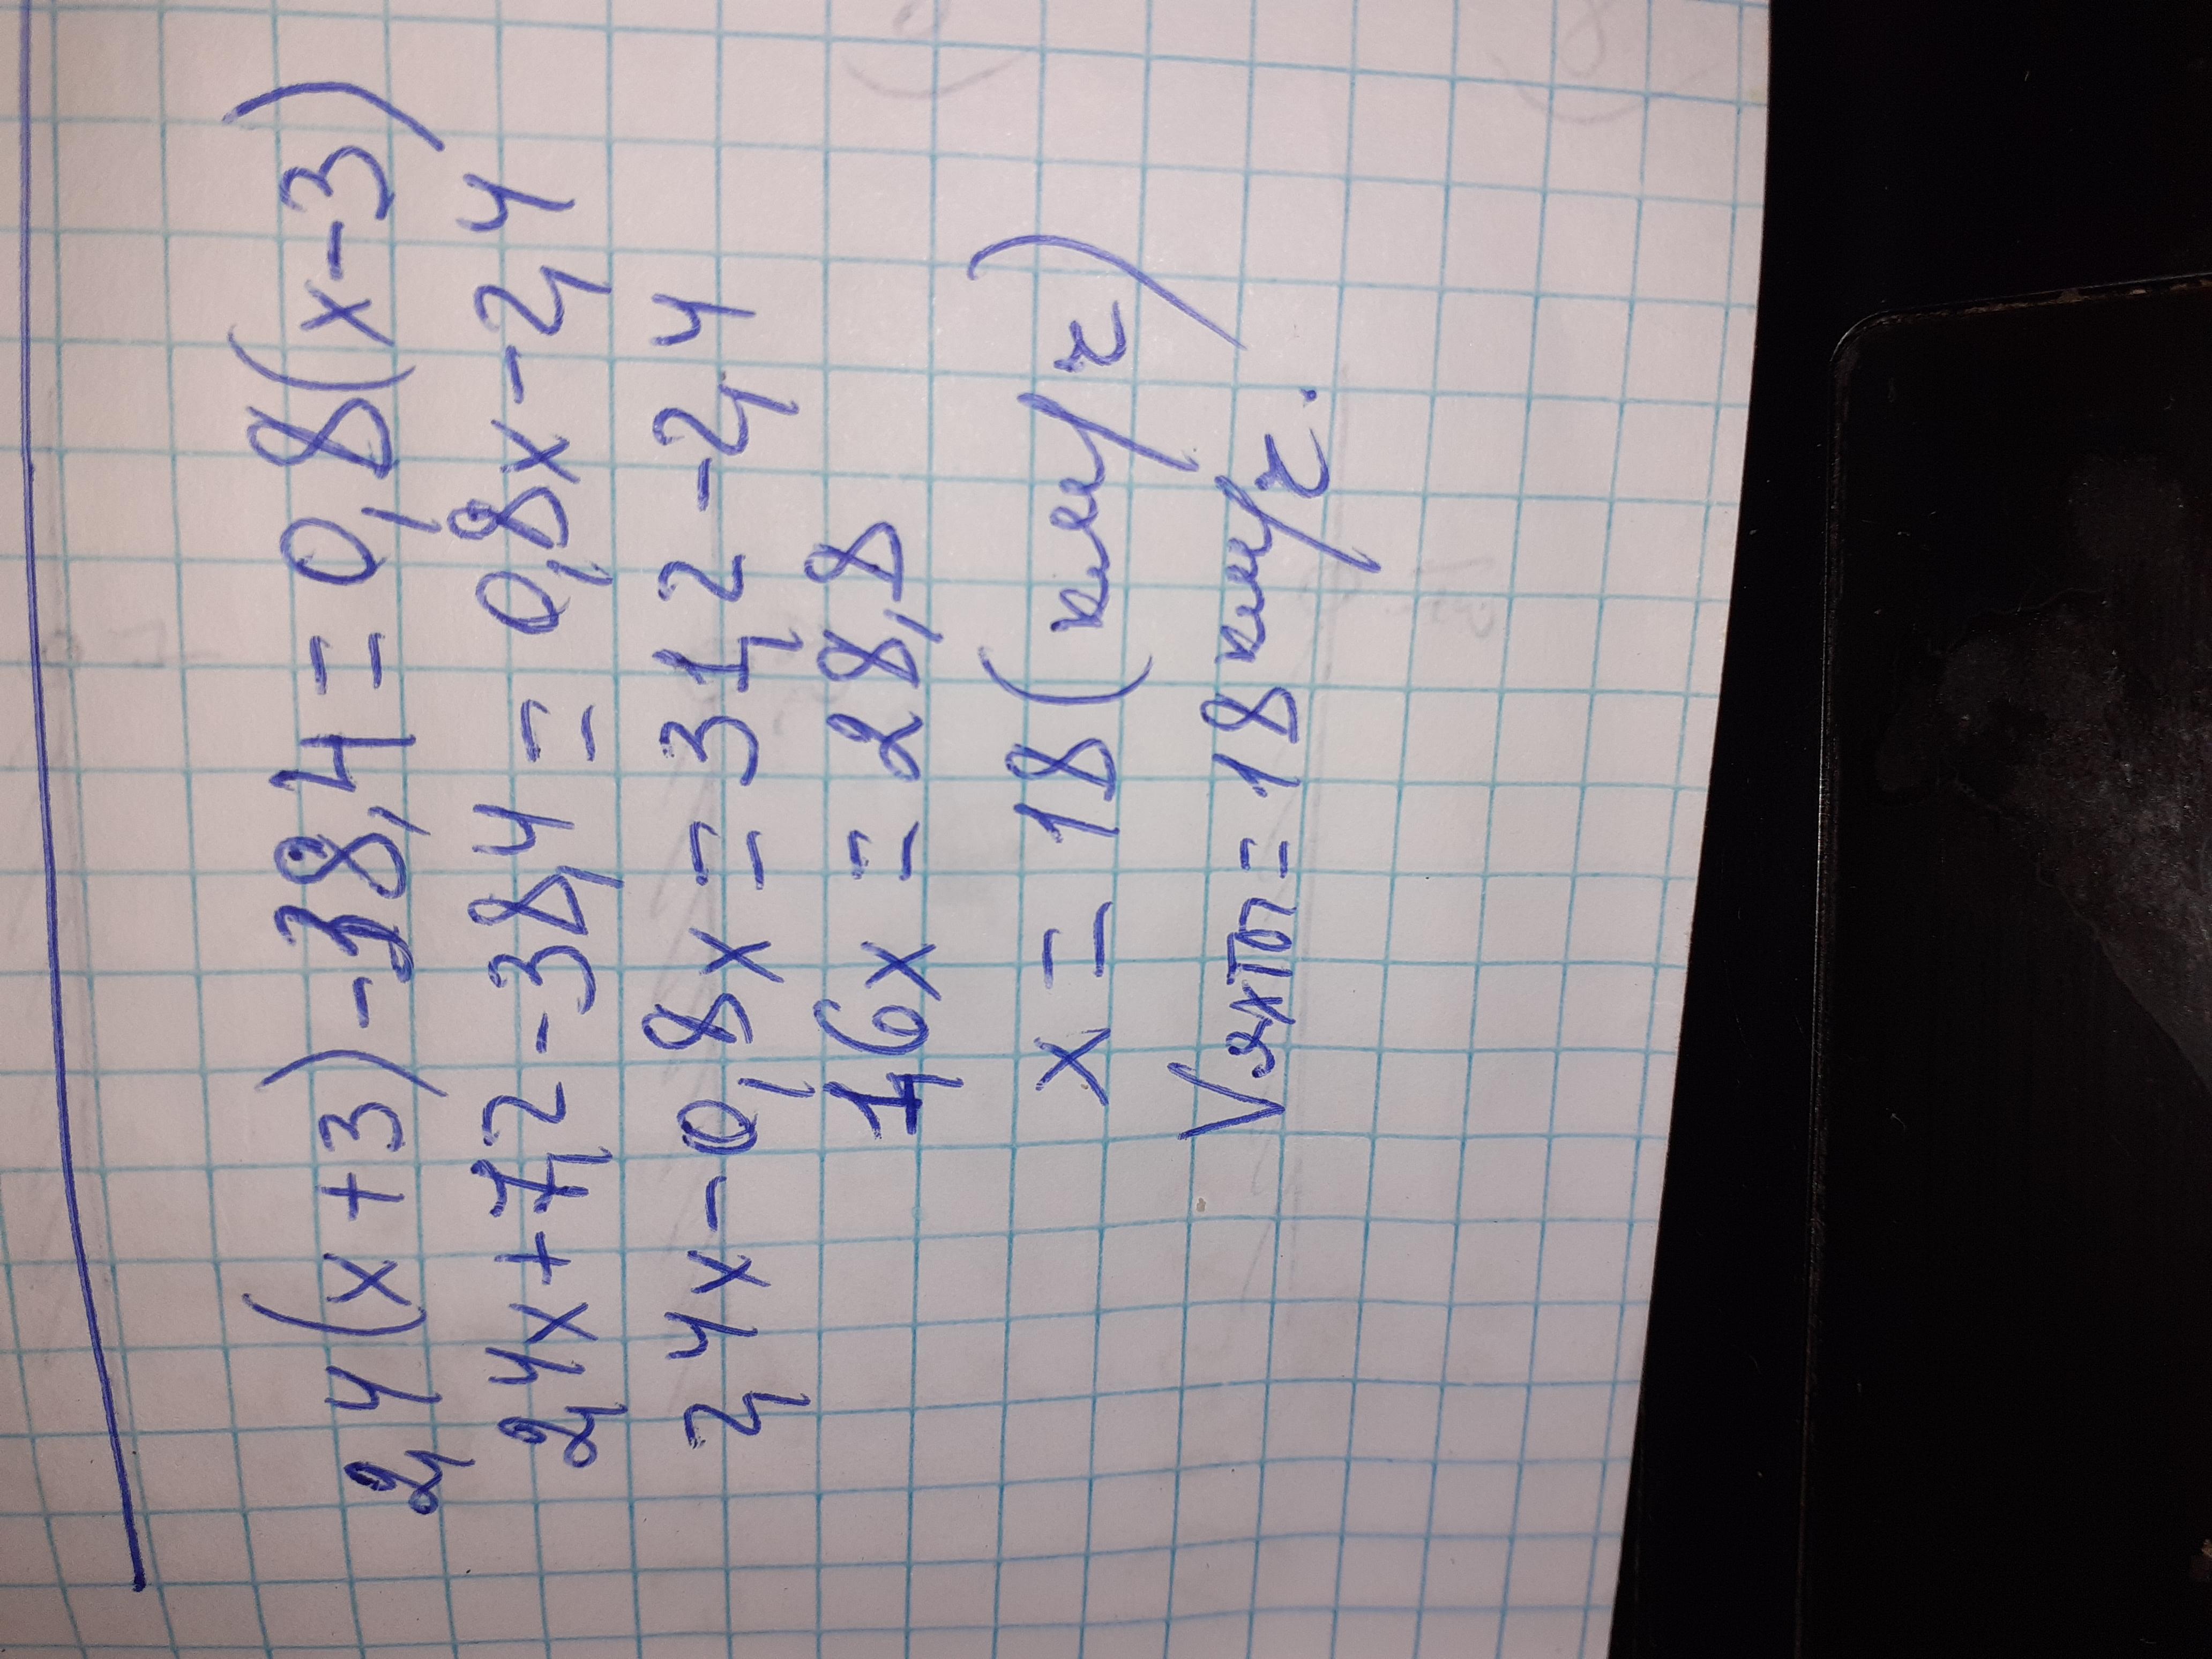 2,4(x+3)-38,4=0,8(x-3)
2,4x+7,2-38,4=0,8x-2,4
2,4x-0,8x=31,2-2,4
1,6x=28,8
x=18(км/ч)
Vяхты=18км/ч.